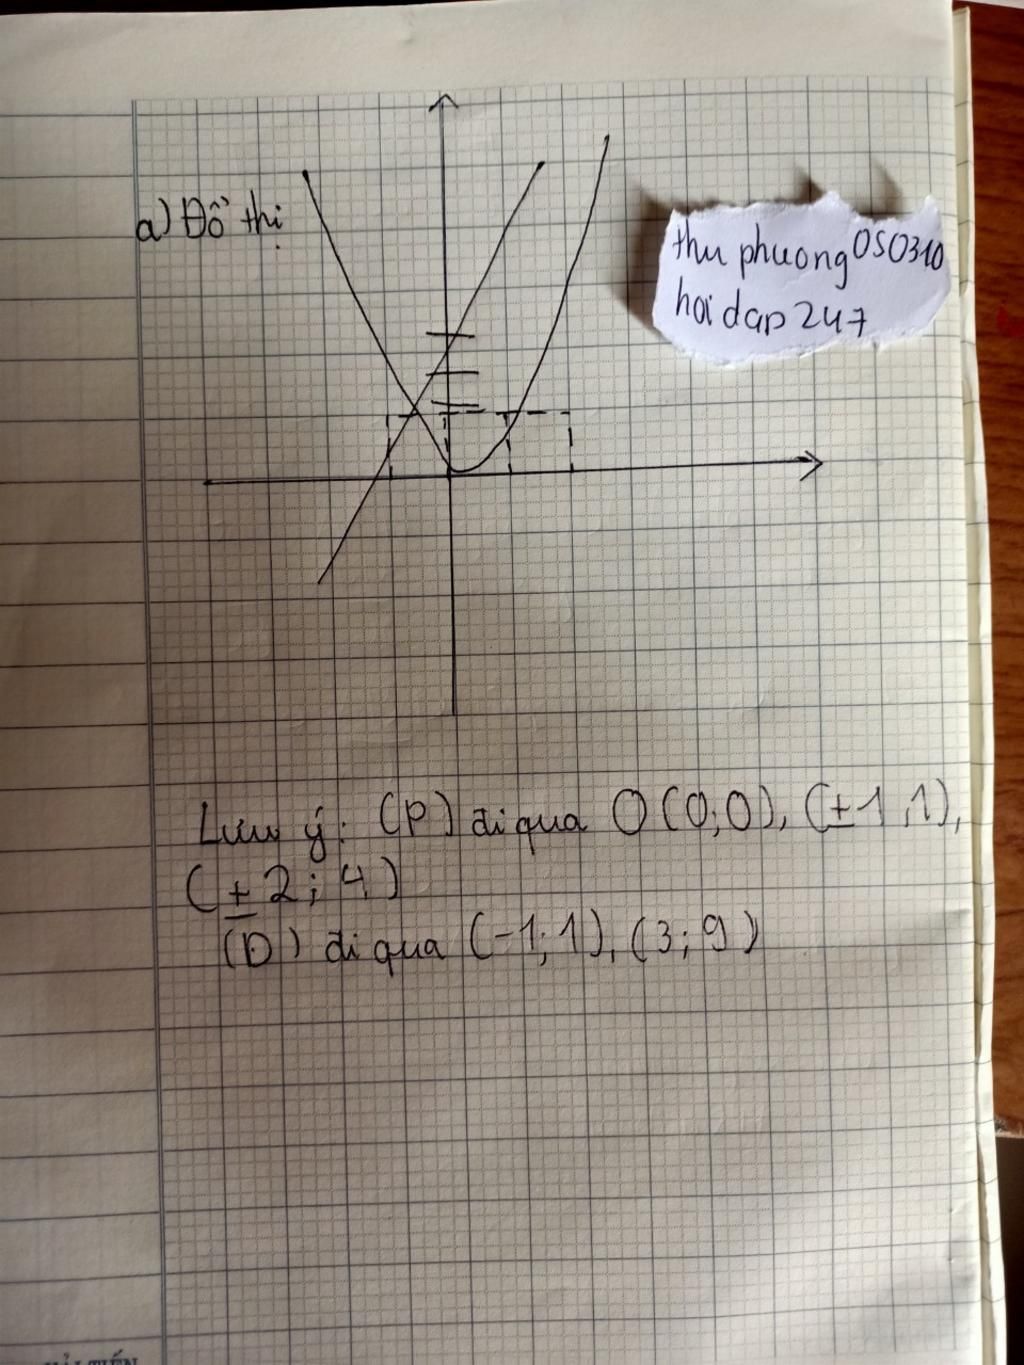 a) Đồ thị
thu phuong050310
hoi dap 247
Lưu ý: (P) đi qua O(0;0), (±1;1),
(±2; 4)
(D) đi qua (-1;1), (3;9)